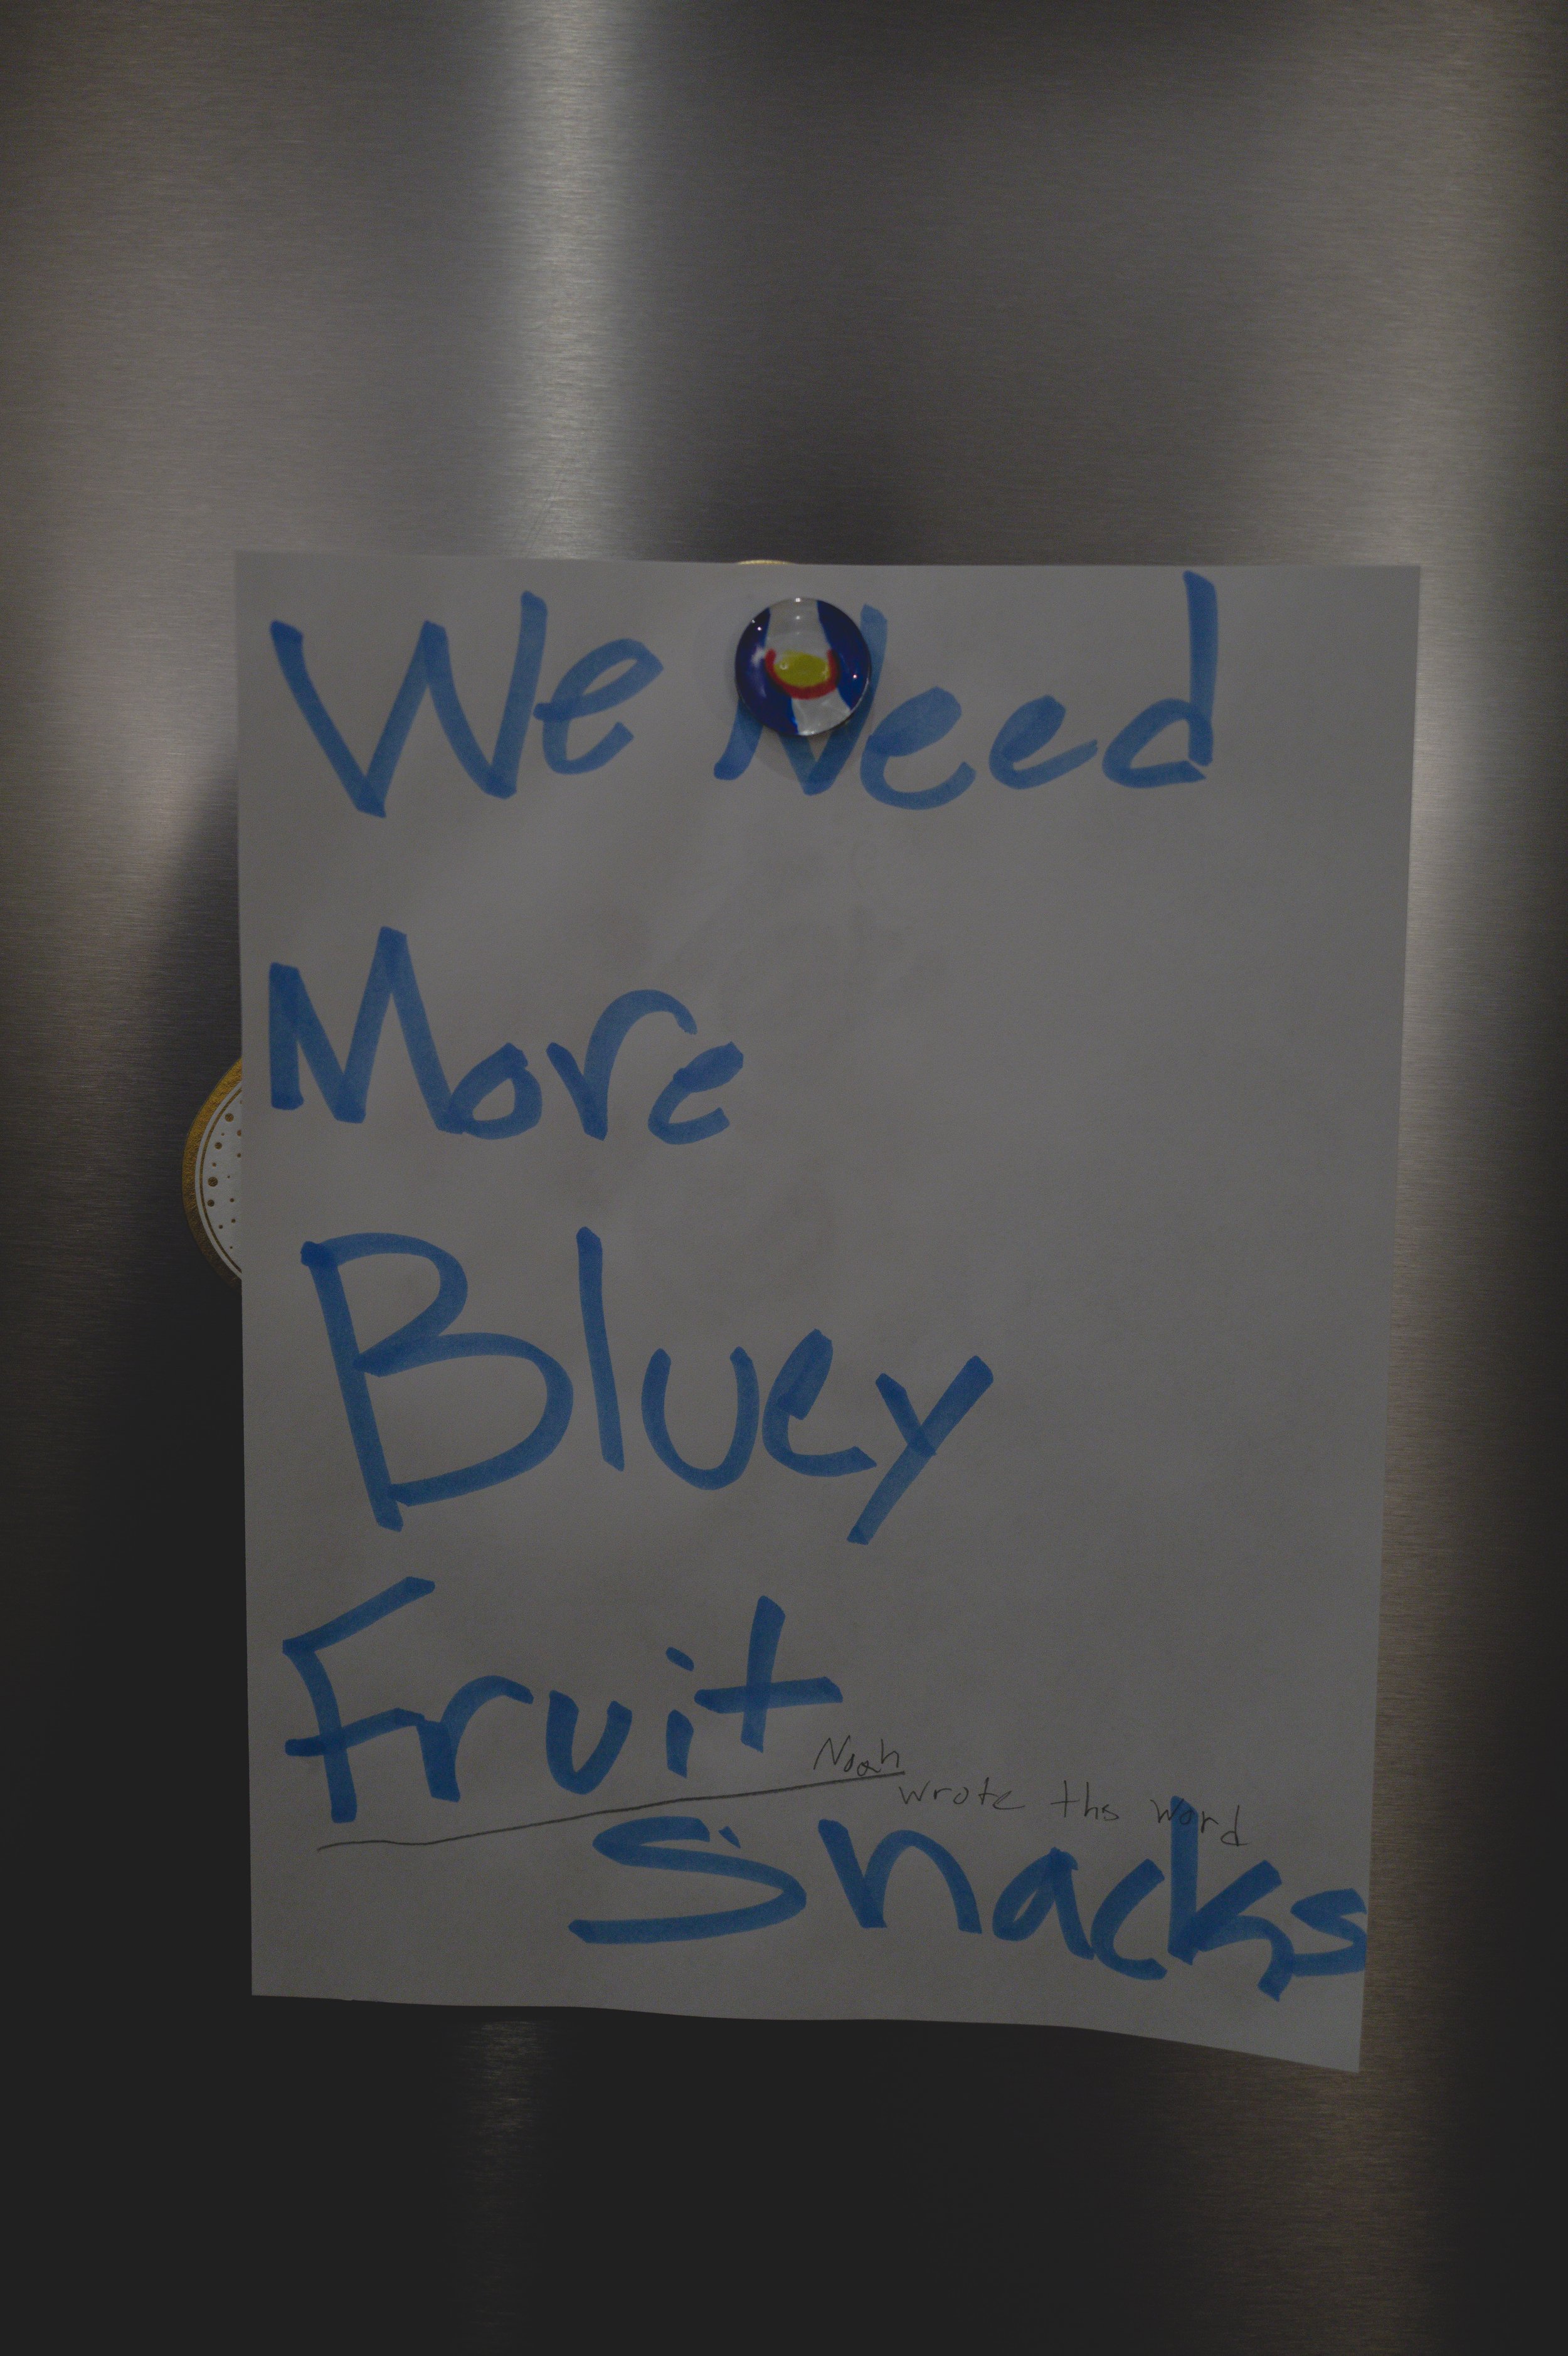 We Need
More
Bluey
Fruit
Noah
wrote ths word
Snacks